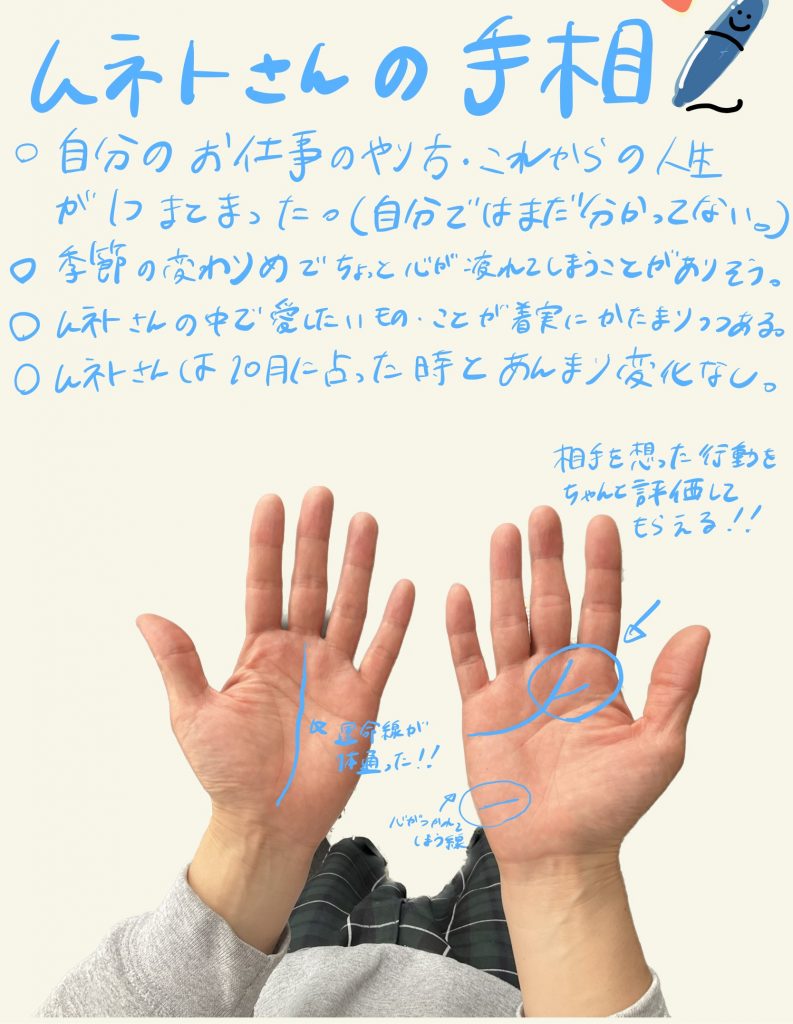 ムネトさんの手相
○ 自分のお仕事のやり方・これからの人生
が1つまとまった。(自分ではまだ分かってない。)
○ 季節の変わりめでちょっと心が疲れてしまうことがありそう。
○ ムネトさんの中で愛したいもの・ことが着実にかたまりつつある。
○ ムネトさんは10月に占った時とあんまり変化なし。
相手を想った行動を
ちゃんと評価して
もらえる!!
運命線が
一本通った!!
心がつかれて
しまう線